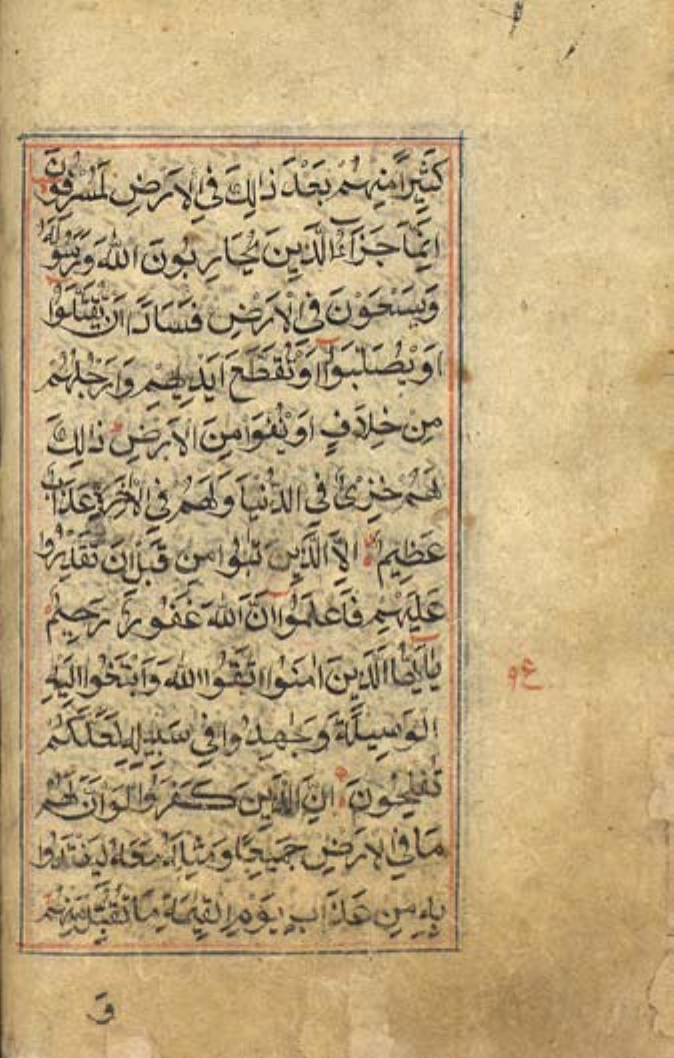 كَثِيرًا مِنْهُمْ بَعْدَ ذَالِكَ فِي الْاَرْضِ لَمُسْرِفُونَ
اِنَّمَا جَزَآءُ الَّذِينَ يُحَارِبُونَ اللهَ وَرَسُولَهُ
وَيَسْعَوْنَ فِي الْاَرْضِ فَسَادًا اَنْ يُقَتَّلُوا
اَوْ يُصَلَّبُوا اَوْ تُقَطَّعَ اَيْدِيهِمْ وَاَرْجُلُهُمْ
مِنْ خِلَافٍ اَوْ يُنْفَوْا مِنَ الْاَرْضِ ذَالِكَ
لَهُمْ خِزْيٌ فِي الدُّنْيَا وَلَهُمْ فِي الْاٰخِرَةِ عَذَابٌ
عَظِيمٌ اِلَّا الَّذِينَ تَابُوا مِنْ قَبْلِ اَنْ تَقْدِرُوا
عَلَيْهِمْ فَاعْلَمُوا اَنَّ اللهَ غَفُورٌ رَحِيمٌ
يٰاَيُّهَا الَّذِينَ اٰمَنُوا اتَّقُوا اللهَ وَابْتَغُوا اِلَيْهِ
الْوَسِيلَةَ وَجٰهِدُوا فِي سَبِيلِهِ لَعَلَّكُمْ
تُفْلِحُونَ اِنَّ الَّذِينَ كَفَرُوا لَوْ اَنَّ لَهُمْ
مَا فِي الْاَرْضِ جَمِيعًا وَمِثْلَهُ مَعَهُ لِيَفْتَدُوا
بِهِ مِنْ عَذَابِ يَوْمِ الْقِيٰمَةِ مَا تُقُبِّلَ مِنْهُمْ
وَ